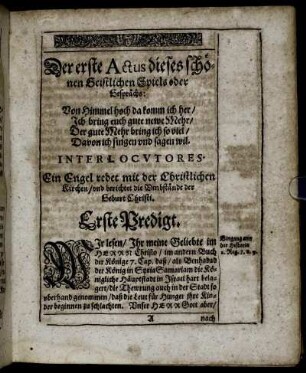 Der erste Actus dieses schö-
nen Geistlichen Spiels oder
Gesprächs:
Von Himmel hoch da komm ich her/
Ich bring euch gute newe Mehr/
Der gute Mehr bring ich so viel/
Davon ich singen vnd sagen wil.
INTERLOCVTORES.
Ein Engel redet mit der Christlichen
Kirchen/ vnd berichtet die Vmbstände der
Geburt Christi.
Erste Predigt.
WIr lesen/ Ihr meine Geliebte im
HERRN Christo/ im andern Buch
der Könige 7. Cap. daß/ als Benhadad
der König in Syria Samariam die Kö-
nigliche Hauptstadt in Israel hart bela-
gert/ die Thewrung auch in der Stadt so
vberhand genommen/ daß die Leut für Hunger ihre Kin-
der beginnen zu schlachten. Vnser HERR Gott aber/
Eingang aus
der Historia
2. Reg. 7. v. 9.
A
nach